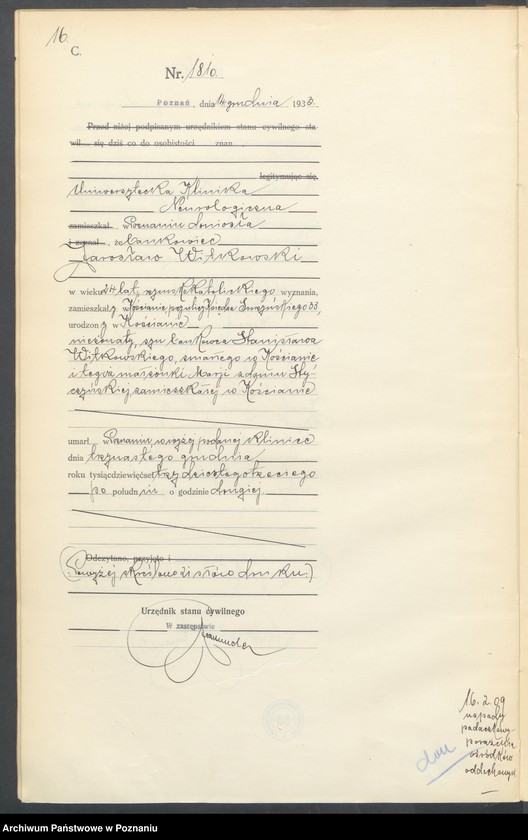 16.
C.
Nr. 1810.
Poznań, dnia 14 grudnia 1933.
Przed niżej podpisanym urzędnikiem stanu cywilnego sta-
wił się dziś co do osobistości znan
legitymując się
Uniwersytecka Klinika
Neurologiczna
zamieszkał w Poznaniu doniosła
i zeznał, że bankowiec
Jarosław Witkowski
w wieku 24 lat, rzymskokatolickiego wyznania,
zamieszkały w Kościanie, przy ulicy Księdza 33,
urodzony w Kościanie
nieżonaty, syn bankowca Stanisława
Witkowskiego, zmarłego w Kościanie
i tegoż małżonki Marji z domu
zamieszkałej w Kościanie
umarł w Poznaniu w wyżej podanej klinice
dnia trzynastego grudnia
roku tysiącdziewięćset trzydziestego trzeciego
po południu o godzinie drugiej.
Odczytano, przyjęto i
(Powyżej skreślono słów druku.)
Urzędnik stanu cywilnego
W zastępstwie
16.2.09
napady
padaczkowe
porażenie
ośródków
oddechowych
Archiwum Państwowe w Poznaniu